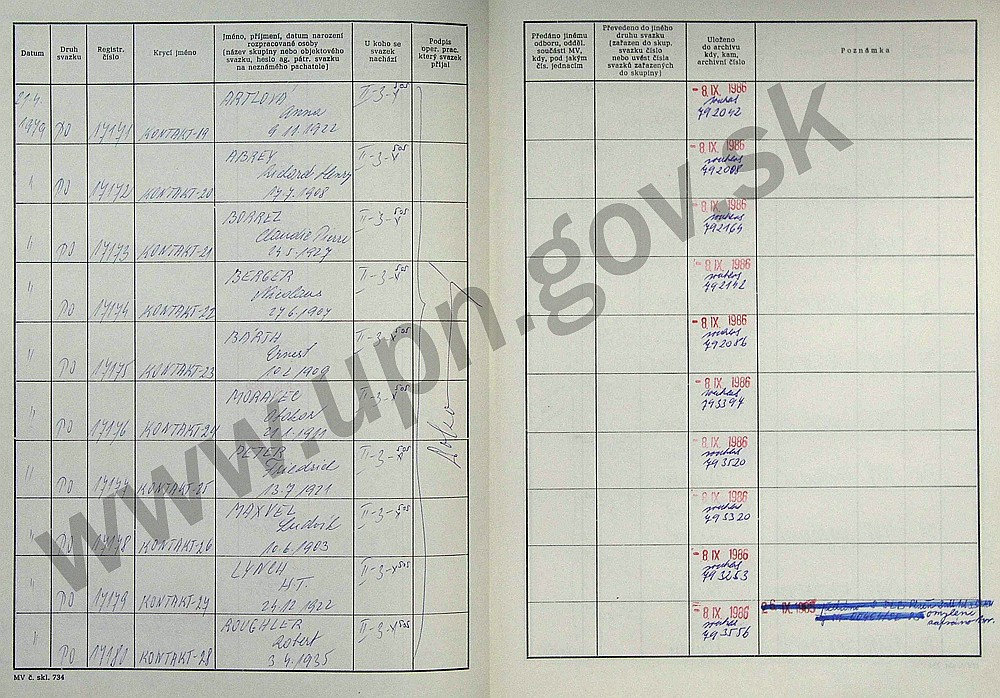 Datum
Druh svazku
Registr. číslo
Krycí jméno
Jméno, příjmení, datum narození
rozpracované osoby
(název skupiny nebo objektového
svazku, heslo ag. pátr. svazku
na neznámého pachatele)
U koho se
svazek
nachází
Podpis
oper. prac.
který svazek
přijal
Předáno jinému
odboru, odděl.
součásti MV,
kdy, pod jakým
čís. jednacím
Převedeno do jiného
druhu svazku
(zařazen do skup.
svazku číslo
nebo uvést čísla
svazků zařazených
do skupiny)
Uloženo
do archivu
kdy, kam,
archivní číslo
Poznámka
1979 PO 17171 KONTAKT-19 ARTLOVÁ Anna 9.11.1922 II-3-X 505
- 8. IX. 1986 792042
" PO 17172 KONTAKT-20 ABREY Henry 17.7.1908 II-3-X 505
- 8. IX. 1986 792008
" PO 17173 KONTAKT-21 BORREL Claudie Pierre 1927 II-3-X 505
- 8. IX. 1986 792164
" PO 17174 KONTAKT-22 BERGER Nicolaus 27.6.1907 II-3-X 505
- 8. IX. 1986 792142
" PO 17175 KONTAKT-23 BARTH Ernest 10.2.1909 II-3-X 505
- 8. IX. 1986 792086
" PO 17176 KONTAKT-24 MORAVEC II-3-X 505
- 8. IX. 1986 793394
" PO 17177 KONTAKT-25 PETER Friedrich 13.7.1921 II-3-X 505
- 8. IX. 1986 793520
" PO 17178 KONTAKT-26 MAXVEL Ludvik 10.6.1903 II-3-X 505
- 8. IX. 1986 793320
" PO 17179 KONTAKT-27 LYNCH H.T. 24.12.1922 II-3-X 505
- 8. IX. 1986 793253
" PO 17180 KONTAKT-28 ROUGHLER Robert 3.4.1935 II-3-X 505
- 8. IX. 1986 793556 omylene
MV č. skl. 734
www.upn.gov.sk